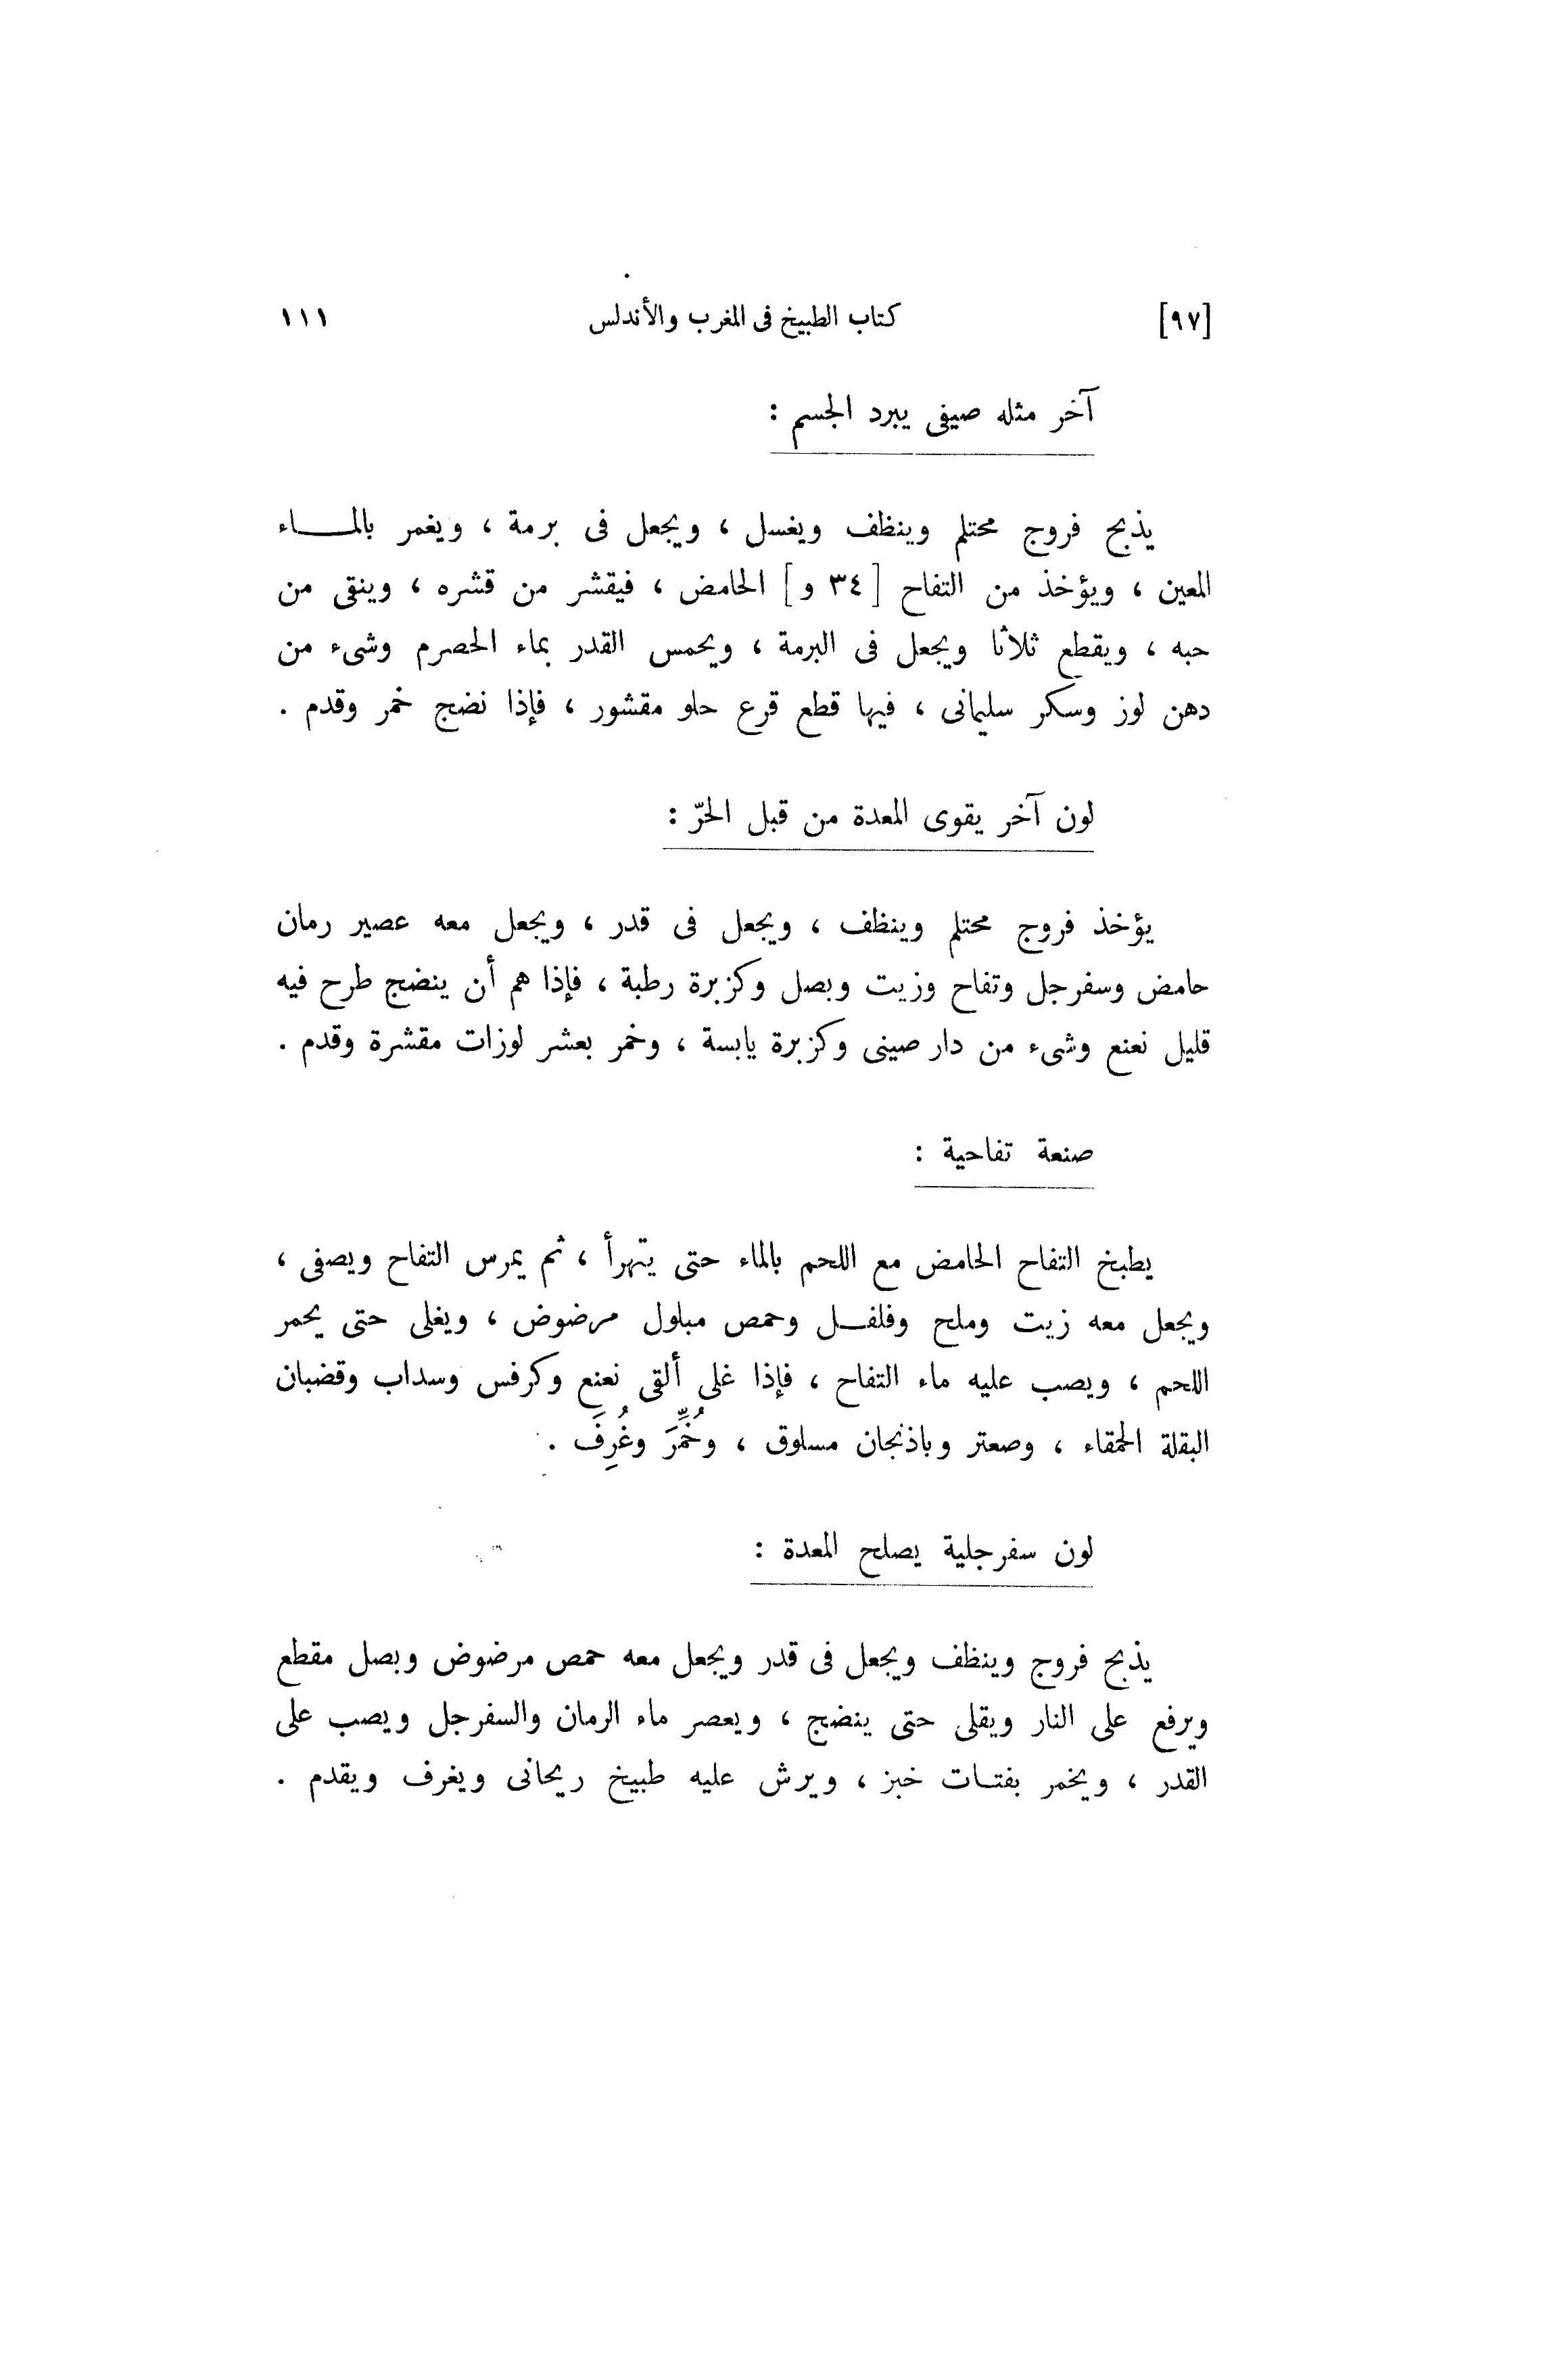 [٩٧] كتاب الطبيخ فى المغرب والأندلس ١١١
آخر مثله صيفى يبرد الجسم :
يذبح فروج محتلم وينظف ويغسل ، ويجعل فى برمة ، ويغمر بالمـــاء
المعين ، ويؤخذ من التفاح [ ٣٤ و ] الحامض ، فيقشر من قشره ، وينقى من
حبه ، ويقطع ثلاثا ويجعل فى البرمة ، ويحمس القدر بماء الحصرم وشىء من
دهن لوز وسكر سليمانى ، فيها قطع قرع حلو مقشور ، فإذا نضج خمر وقدم .
لون آخر يقوى المعدة من قبل الحرّ :
يؤخذ فروج محتلم وينظف ، ويجعل فى قدر ، ويجعل معه عصير رمان
حامض وسفرجل وتفاح وزيت وبصل وكزبرة رطبة ، فإذا هم أن ينضج طرح فيه
قليل نعنع وشىء من دار صينى وكزبرة يابسة ، وخمر بعشر لوزات مقشرة وقدم .
صنعة تفاحية :
يطبخ التفاح الحامض مع اللحم بالماء حتى يتهرأ ، ثم يمرس التفاح ويصفى ،
ويجعل معه زيت وملح وفلفـل وحمص مبلول مرضوض ، ويغلى حتى يحمر
اللحم ، ويصب عليه ماء التفاح ، فإذا غلى ألقى نعنع وكرفس وسداب وقضبان
البقلة الحمقاء ، وصعتر وباذنجان مسلوق ، وخُمِّرَ وغُرِفَ .
لون سفرجلية يصلح المعدة :
يذبح فروج وينظف ويجعل فى قدر ويجعل معه حمص مرضوض وبصل مقطع
ويرفع على النار ويقلى حتى ينضج ، ويعصر ماء الرمان والسفرجل ويصب على
القدر ، ويخمر بفتـات خبز ، ويرش عليه طبيخ ريحانى ويغرف ويقدم .